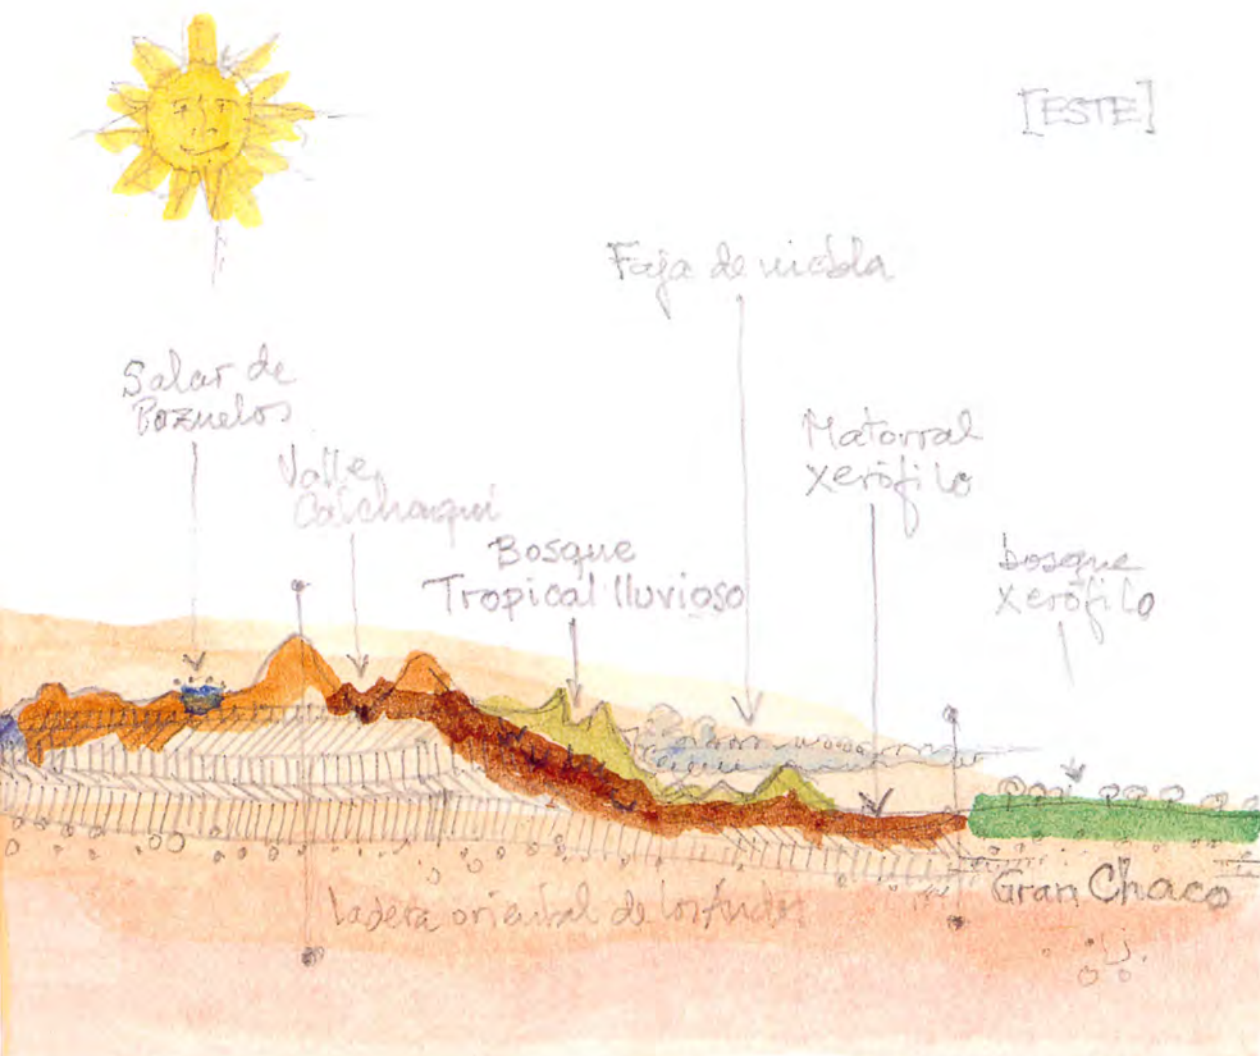 [ESTE]
Faja de niebla
Salar de
Pozuelos
Valle
Calchaquí
Matorral
Xerófilo
Bosque
Tropical lluvioso
bosque
Xerófilo
Gran Chaco
ladera oriental de los Andes